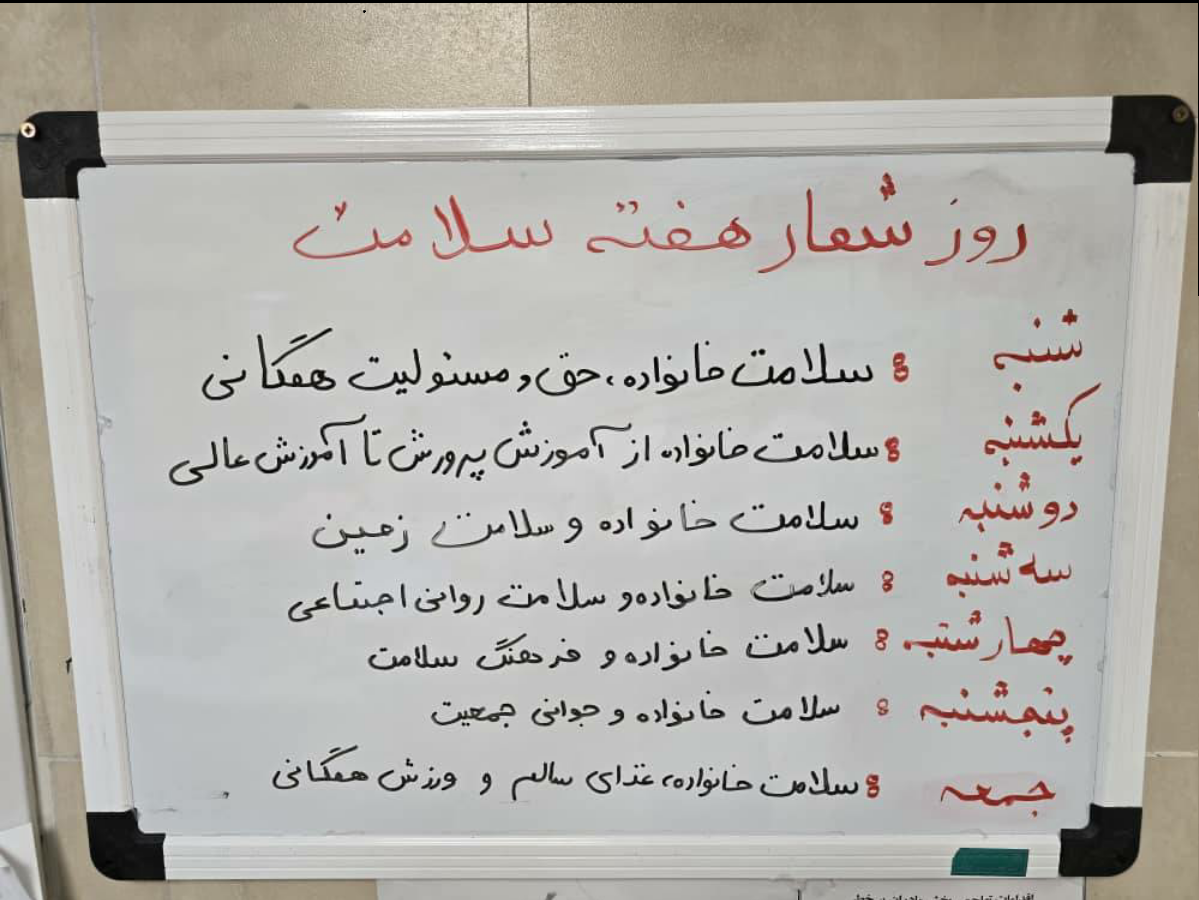 روز شعار هفته سلامت
شنبه : سلامت خانواده، حق و مسئولیت همگانی
یکشنبه : سلامت خانواده از آموزش پرورش تا آموزش عالی
دوشنبه : سلامت خانواده و سلامت زمین
سه شنبه : سلامت خانواده و سلامت روانی اجتماعی
چهارشنبه : سلامت خانواده و فرهنگ سلامت
پنجشنبه : سلامت خانواده و جوانی جمعیت
جمعه : سلامت خانواده، غذای سالم و ورزش همگانی